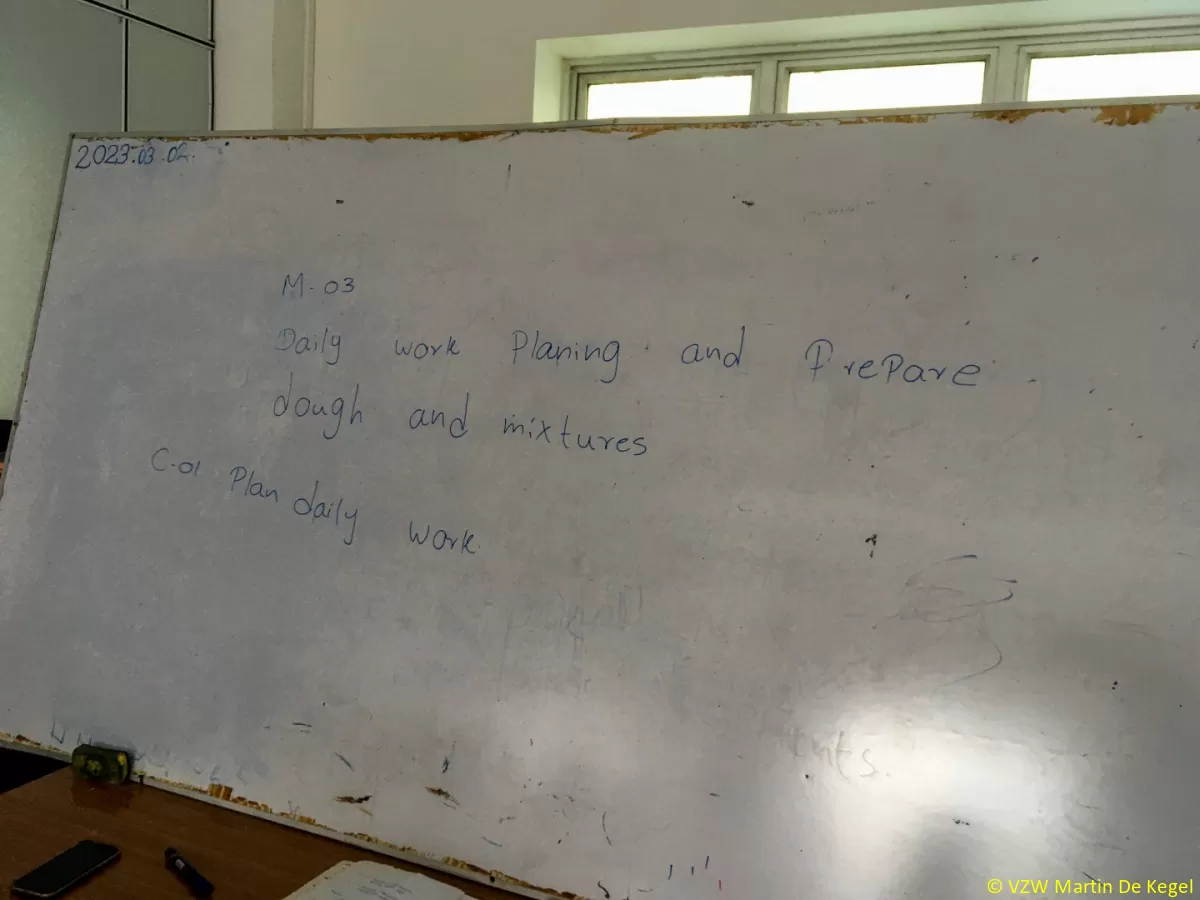 2023.03.02.
M-03
Daily work Planing and Prepare
dough and mixtures
C-01 Plan daily work
© VZW Martin De Kegel